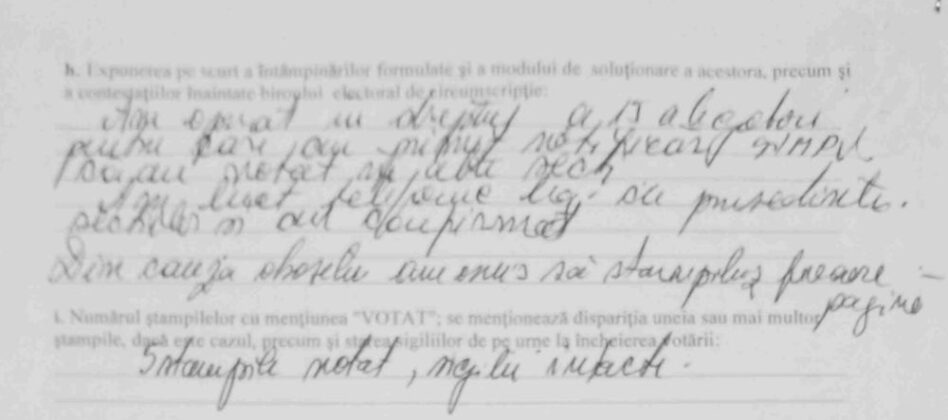 h. Expunerea pe scurt a întâmpinărilor formulate şi a modului de soluţionare a acestora, precum şi
a contestaţiilor înaintate biroului electoral de circumscripţie:
Am operat in dreptul a 13 alegatori
pentru care am primit notificari SIMPV
ca au votat in alte sectii
Am luat telefonic leg. cu
si au confirmat
Din cauza oboselii am omis să stampiluz fiecare
pagina
i. Numărul ştampilelor cu menţiunea "VOTAT"; se menţionează dispariţia uneia sau mai multor
ştampile, dacă este cazul, precum şi starea sigiliilor de pe urne la încheierea votării:
5 stampile votat, sigilii intacte.